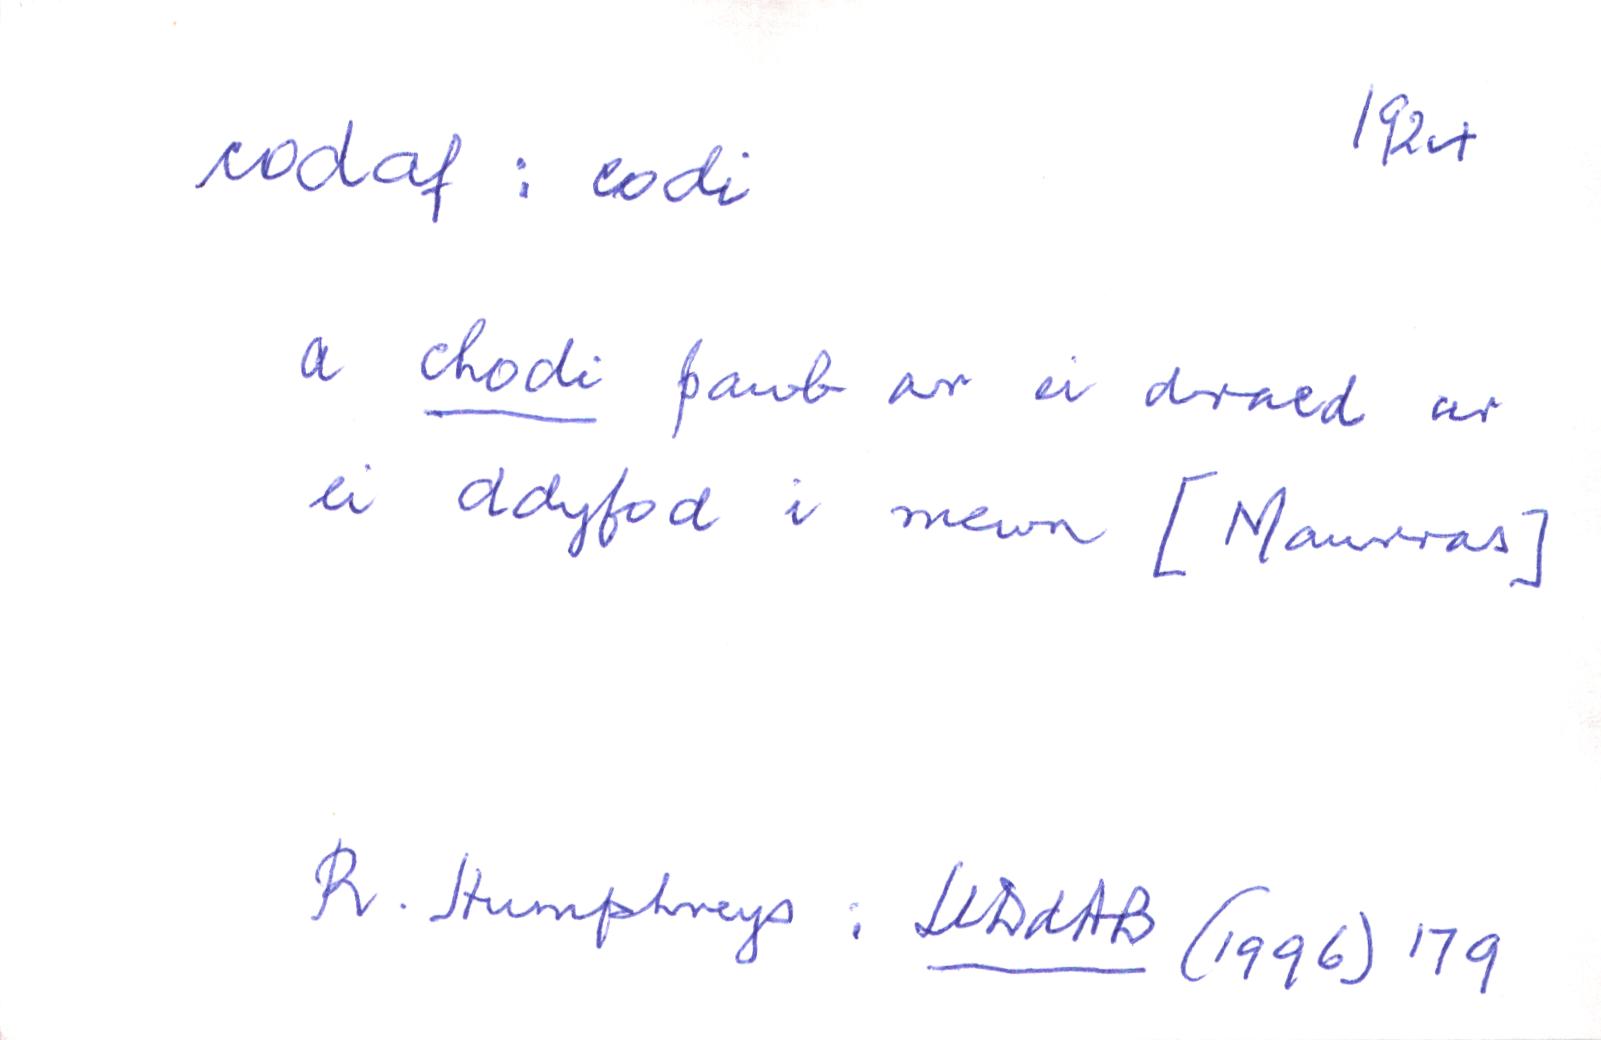 codaf : codi
1924
a chodi pawb ar ei draed ar
ei ddyfod i mewn [Maurras]
R. Humphreys : (1996) 179